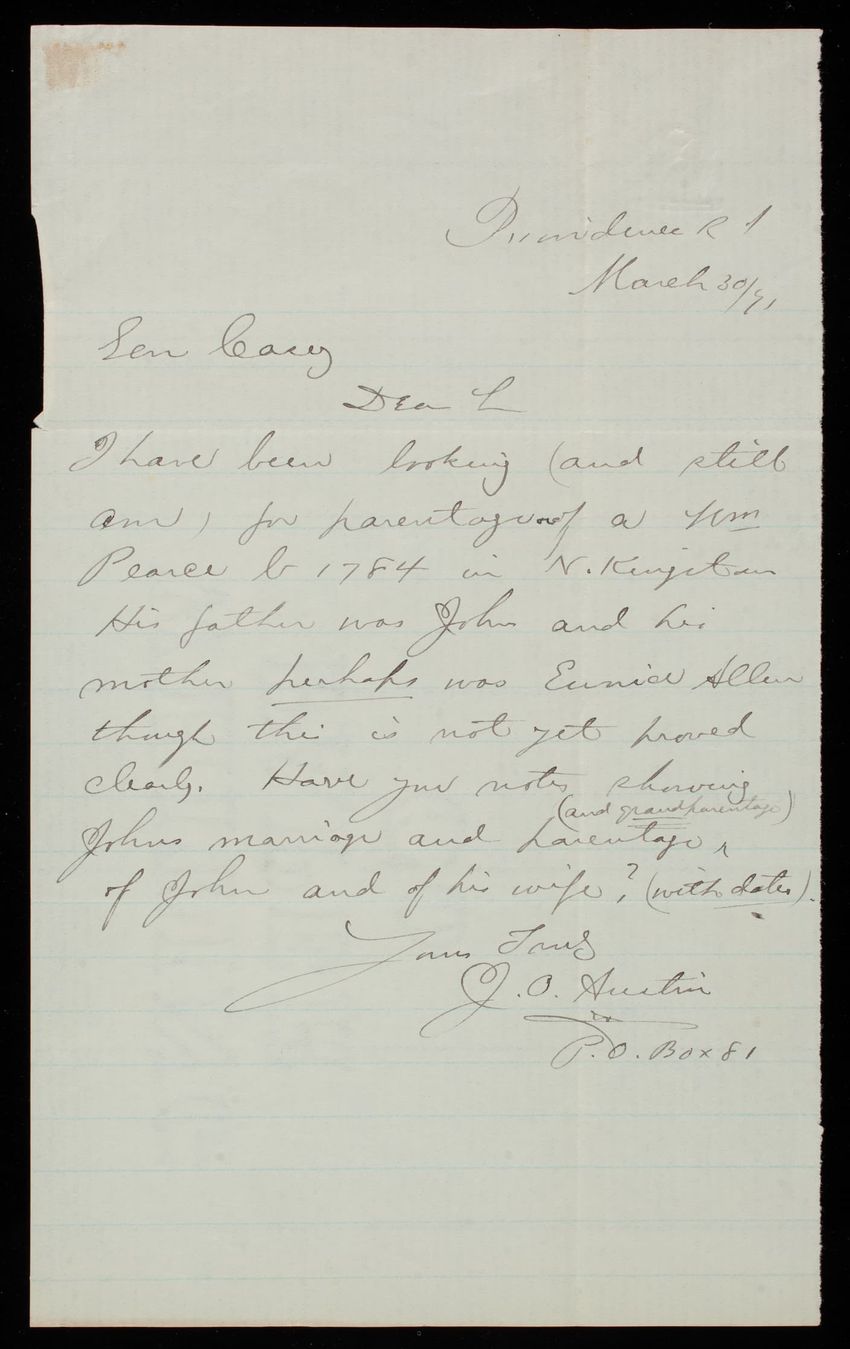 Providence R I
March 30/91
Gen Casey
Dear Sir
I have been looking (and still
am) for parentage of a Wm
Pearce b 1784 in N. Kingstown
His father was John and his
mother perhaps was Eunice Allen
though this is not yet proved
clearly. Have you notes showing
(and grandparentage)
Johns marriage and parentage
of John and of his wife? (with dates).
Yours Truly
J. O. Austin
P. O. Box 81